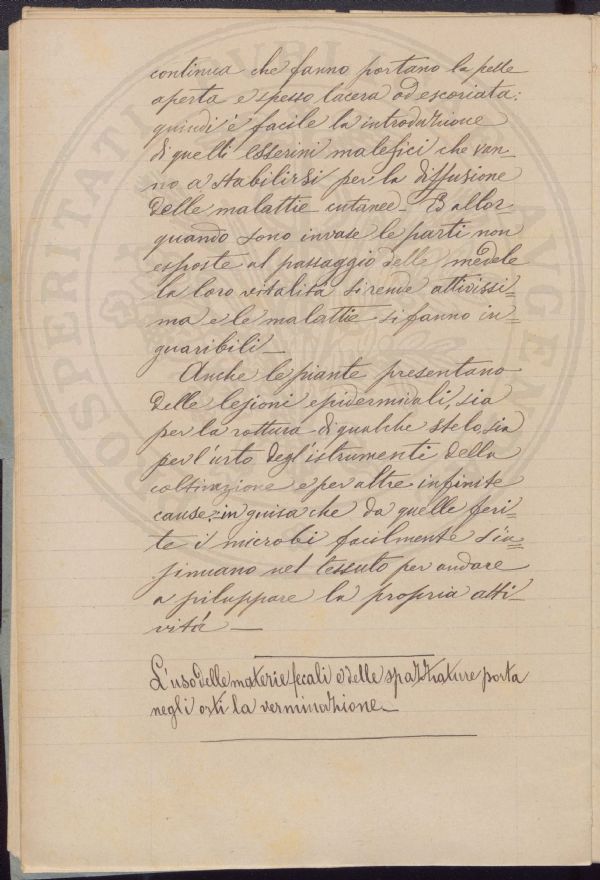 continua che fanno portano la pelle
aperta e spesso lacera od escoriata:
quindi è facile la introduzione
di quelli esserini malefici che van-
no a stabilirsi per la diffusione
delle malattie cutanee. E allor
quando sono invase le parti non
esposte al passaggio delle medele
la loro vitalità si rende attivissi=
ma e le malattie si fanno in=
guaribili_
Anche le piante presentano
delle lesioni epidermidali, sia
per la rottura di qualche stelo, sia
per l'urto degl'istrumenti della
coltivazione e per altre infinite
cause: in guisa che da quelle feri=
te i microbi facilmente s'in=
sinuano nel tessuto per andare
a siluppare la propria atti-
vità_
L'uso delle materie fecali e delle spazziature porta
negli orti la verminazione_
PROSPERITATI AVGEN